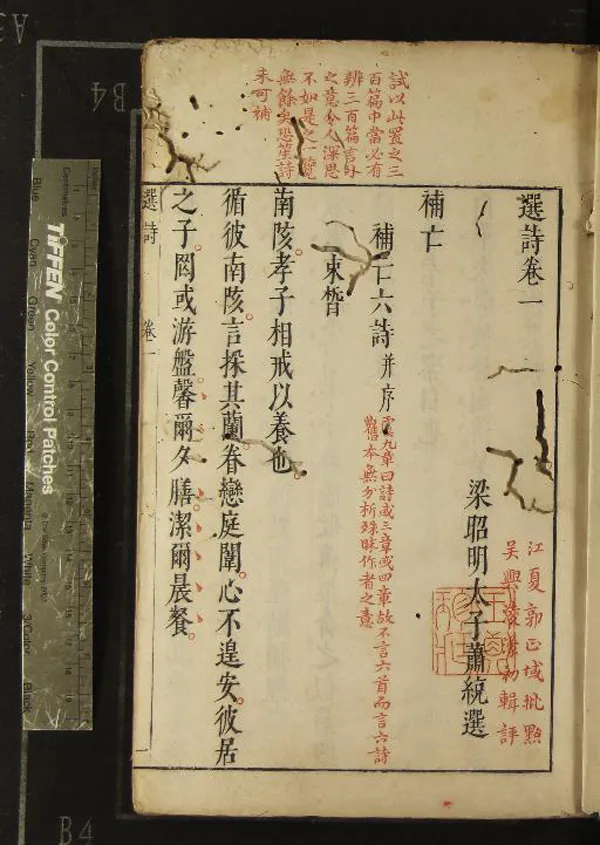 試以此置之三
百篇中當必有
辨三百篇言外
之意令人深思
不如是之一覽
無餘矣恐笙詩
未可補
選詩卷一
梁昭明太子蕭統選
江夏郭正域批點
吳興凌濛初輯評
補亡
補亡六詩并序
雲九章曰詩或三章或四章故不言六首而言六詩
舊本無分析殊昧作者之意
束皙
南陔孝子相戒以養也
循彼南陔言採其蘭眷戀庭闈心不遑安彼居
之子罔或游盤馨爾夕膳潔爾晨餐
選詩
卷一
TIFFEN Color Control Patches
Blue
Cyan
Green
Yellow
Red
Magenta
White
3/Color
Black
Centimetres
B4
A3
B4